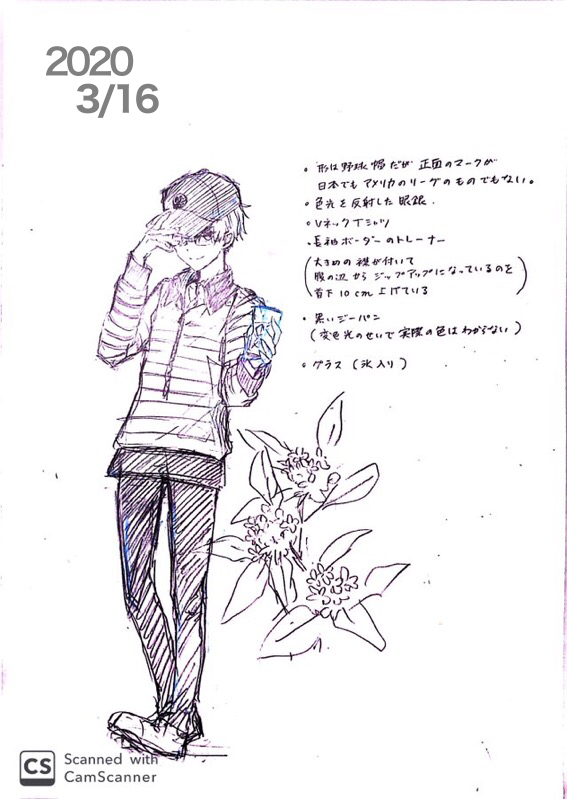 2020
3/16
• 形は野球帽だが 正面のマークが
日本でも アメリカのリーグのものでもない。
• 色光を反射した眼鏡.
• Vネック Tシャツ
• 長袖ボーダーのトレーナー
(大きめの襟が付いて
腹の辺から ジップアップになっているのを
首下10cm上げている)
• 黒いジーパン
(変色光のせいで実際の色はわからない)
• グラス (氷入り)
CS Scanned with
CamScanner